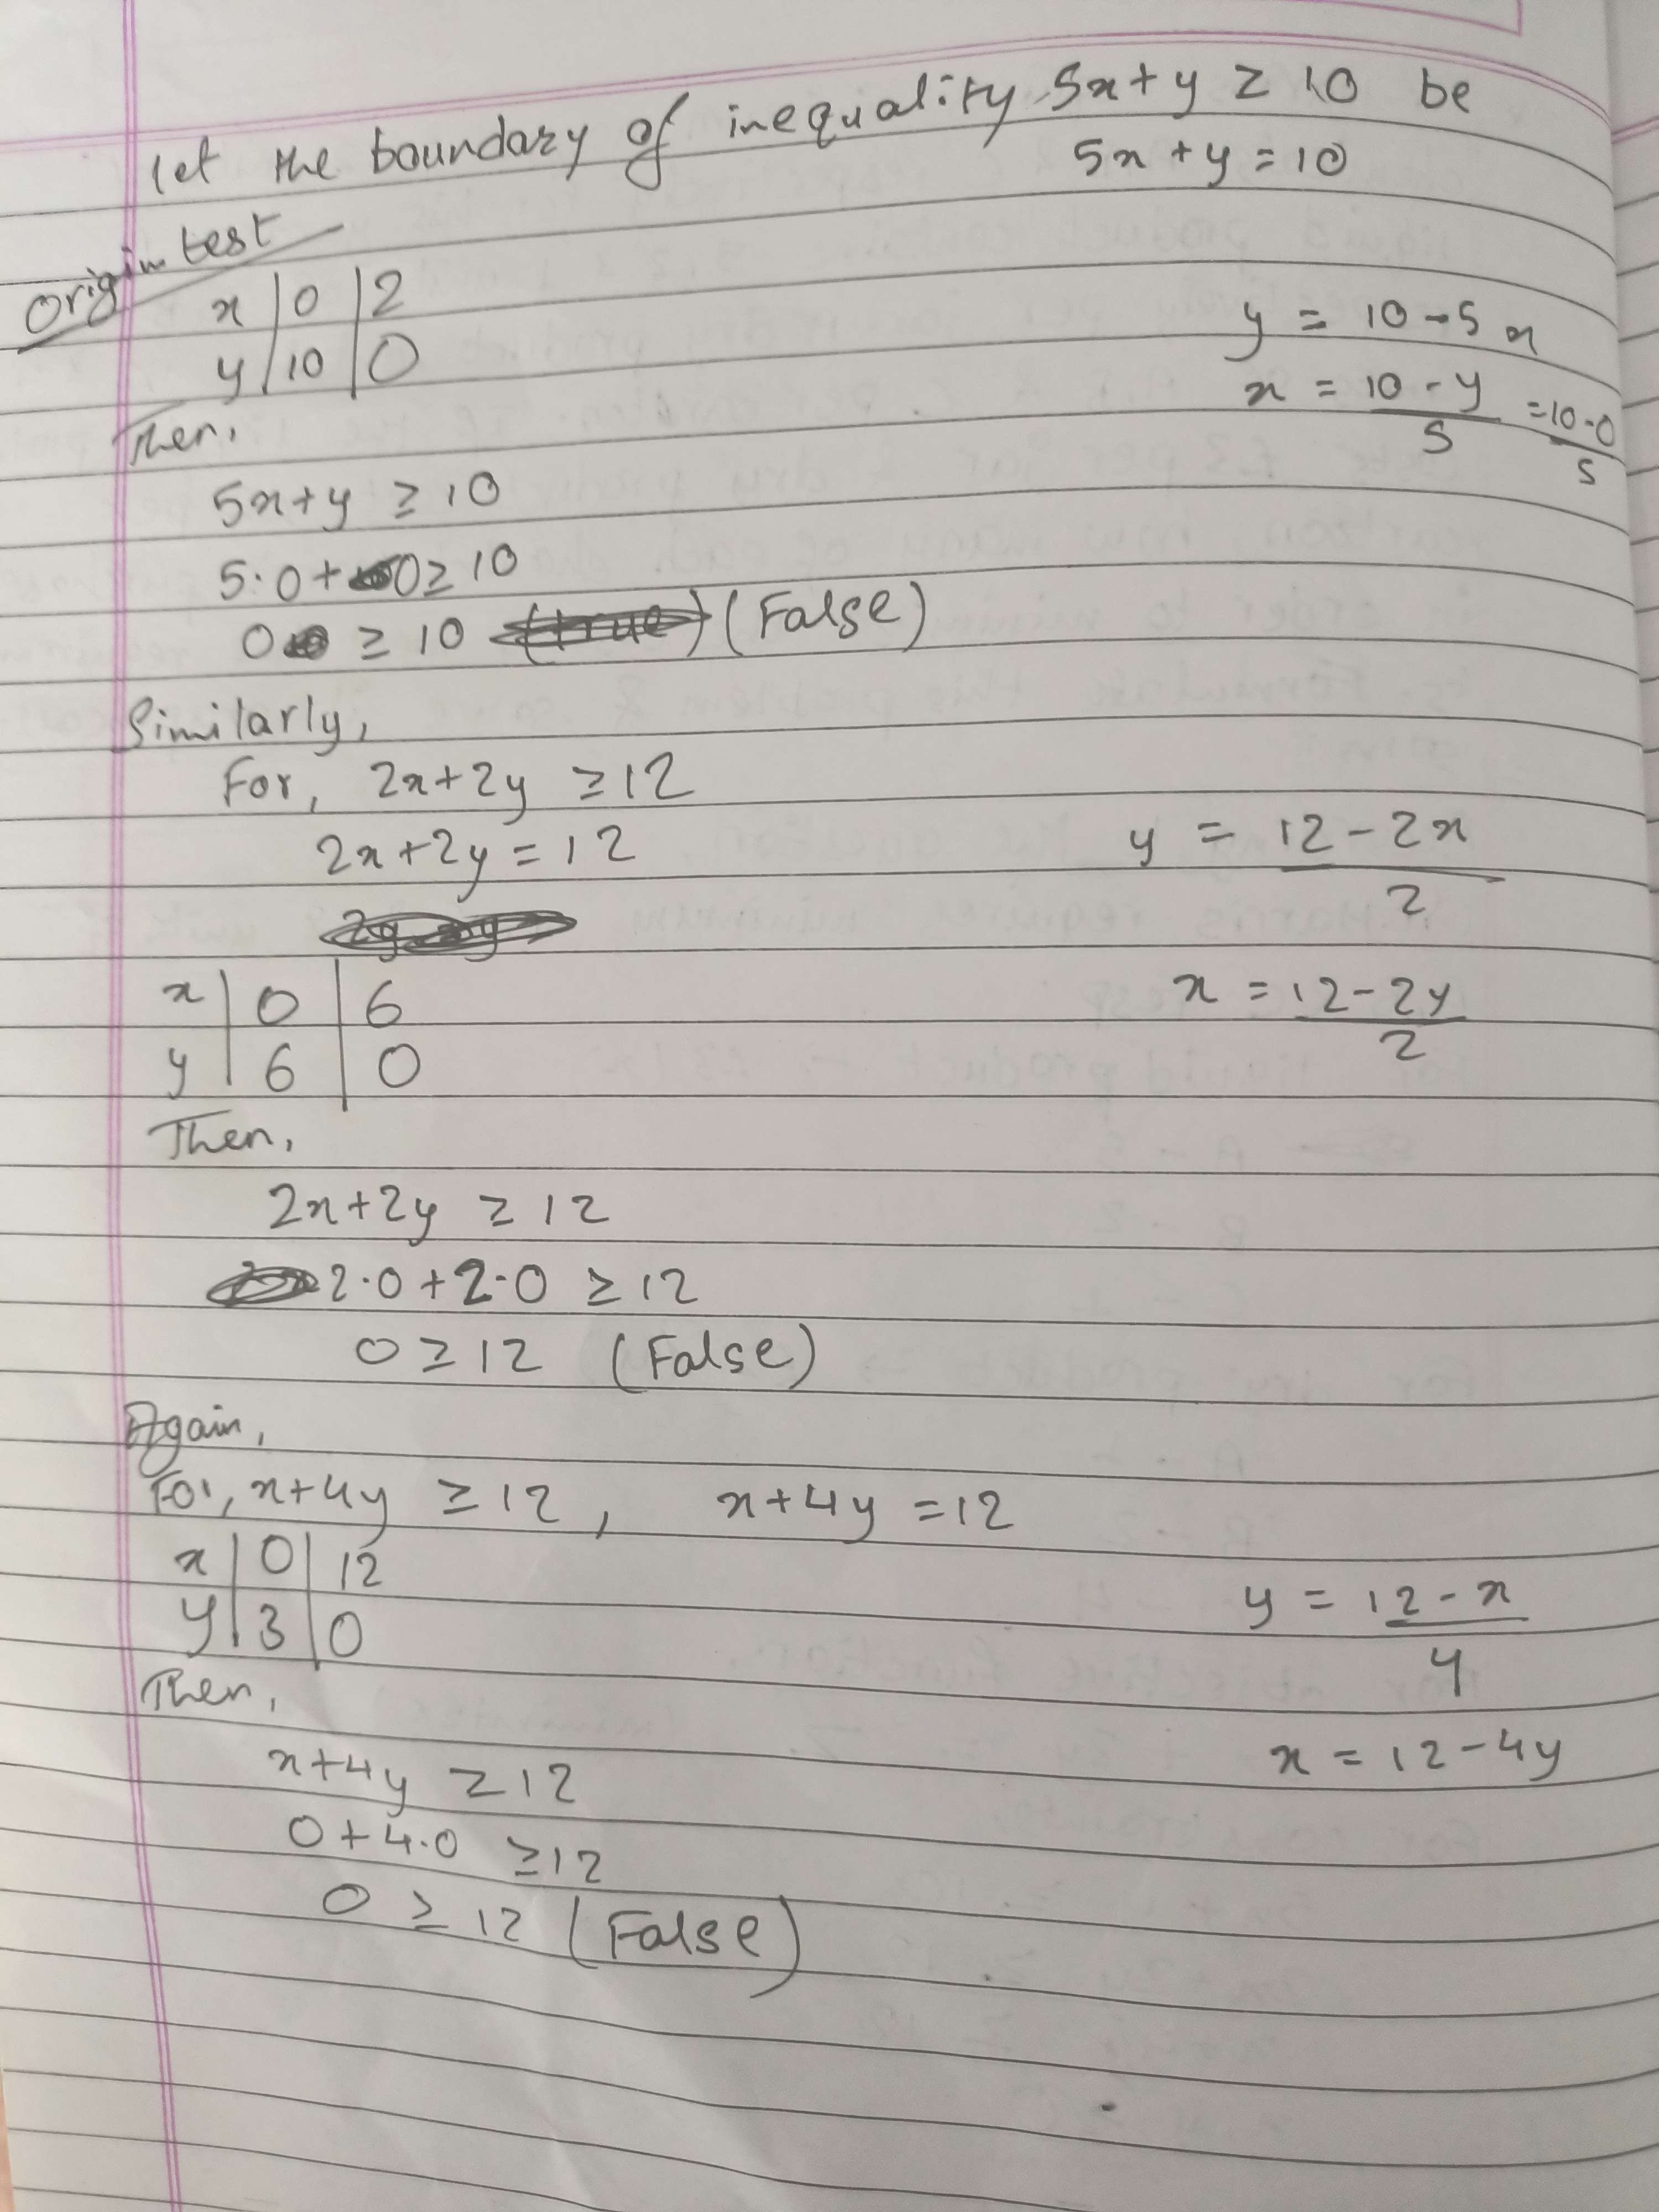 let the boundary of inequality 5x+y ≥ 10 be
5x+y=10
Origin test
x | 0 | 2
y | 10 | 0
y = 10-5x
x = 10-y/5 = 10-0/5
Then,
5x+y ≥ 10
5·0+0≥10
0 ≥ 10 (true) (False)
Similarly,
For, 2x+2y ≥12
2x+2y=12
y = 12-2x/2
x | 0 | 6
y | 6 | 0
x = 12-2y/2
Then,
2x+2y ≥ 12
2·0+2·0 ≥ 12
0≥12 (False)
Again,
For, x+4y ≥ 12, x+4y =12
x | 0 | 12
y | 3 | 0
y = 12-x/4
x = 12-4y
Then,
x+4y ≥12
0+4·0 ≥12
0 ≥ 12 (False)